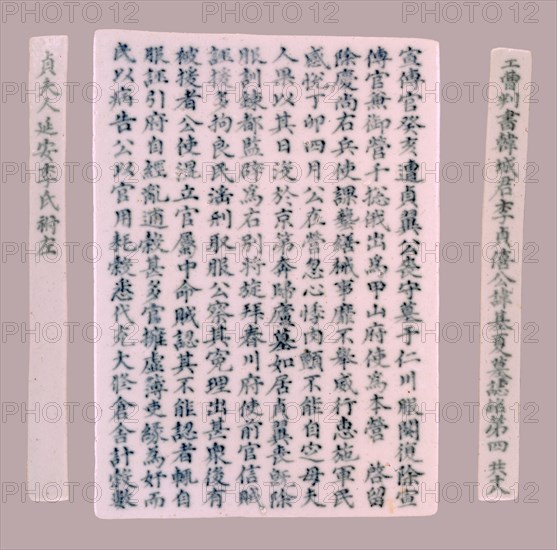 工曹判書韓城君李貞僖公諱基夏墓誌銘第四共十八
宣傳官癸亥遭貞翼公喪守墓于仁川服闋復除宣
傳官兼御營千摠俄出爲甲山府使爲本營 啓留
除慶尚右兵使課藝繕械事靡不擧威行惠施軍民
感悅丁卯四月公在營忽心悸肉顫不能自定母夫
人果以其日沒於京第奔歸廬墓如居貞翼喪旣除
服訓鍊都監辟爲右別將旋拜春川府使前官信賊
誣捿多拘良民淫刑取服公察其寃理出甚衆後有
被捿者公使混立官屬中命賊認其不能認者輒自
服誣引府自經亂逋糓甚多官擁虛簿吏緣爲奸而
民以病告公以官用耗糓悉代充大修倉舍計糓數
貞夫人延安李氏祔左
PHOTO